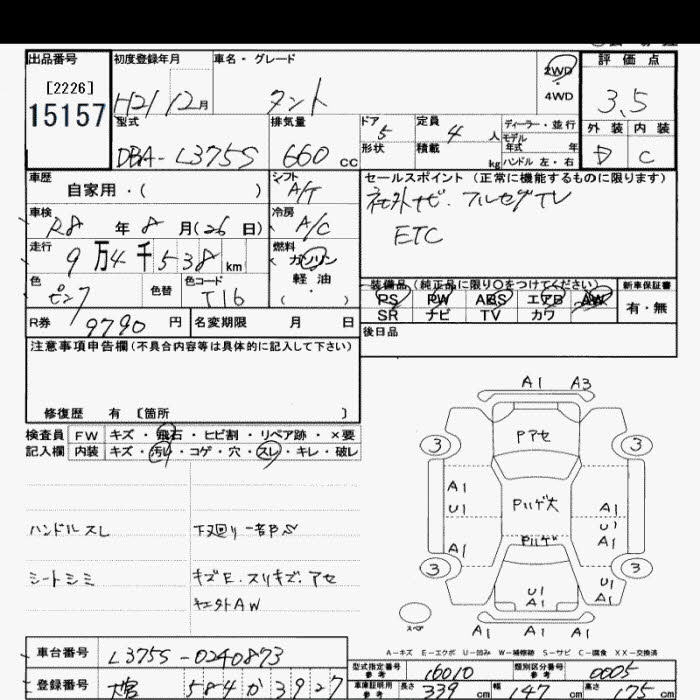 出品番号 初度登録年月 車名・グレード 2WD 評価点
[2226] 4WD 3.5
15157 H21 12月 タント 外装 内装
型式 排気量 ドア 定員 ディーラー・並行 D C
DBA-L375S 660cc 5 4人 モデル年式 年
形状 積載 kg ハンドル 左・右
車歴 シフト セールスポイント(正常に機能するものに限ります)
自家用・( ) A/T 社外ナビ.フルセグTV
車検 冷房 ETC
R8年8月(26日) A/C
走行 燃料
9万4千538km ガソリン
色 色替 色コード 軽油 装備品(純正品に限り○をつけてください) 新車保証書
ピンク T16 (・) PS PW ABS エアB AW 有・無
R券 9790円 名変期限 月 日 SR ナビ TV カワ
注意事項申告欄(不具合内容等は具体的に記入して下さい) 後日品
修復歴 有 〔箇所 〕
A1 A3
検査員 FW キズ・飛石・ヒビ割・リペア跡・×要
記入欄 内装 キズ・汚れ・コゲ・穴・スレ・キレ・破レ
Pアセ
3 3
A1
U1
A1
A1
U1
A1
3 3
U1
A1
U1
A1
スペア
A1 A1 A1
ハンドルスレ 下廻り一部PS
シートシミ キズE.スリキズ.アセ
社外AW
A-キズ E-エクボ U-凹み W-補修跡 S-サビ C-腐食 XX-交換済
車台番号 L375S-0240873 型式指定番号 参考 16010 類別区分番号 参考 0005
登録番号 584 か 3927 車庫証明用 参考 長さ 339cm 幅 147cm 高さ 175cm